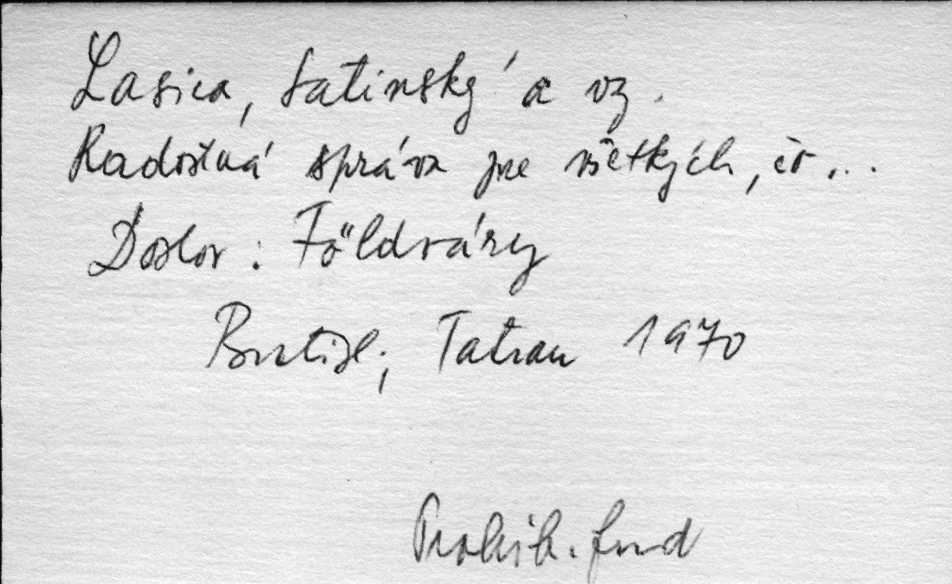 Lasica, Satinský a vy.
Radostná správa pre všetkých, čo...
Doslov: Földváry
Bratisl; Tatran 1970
Prohib. fond